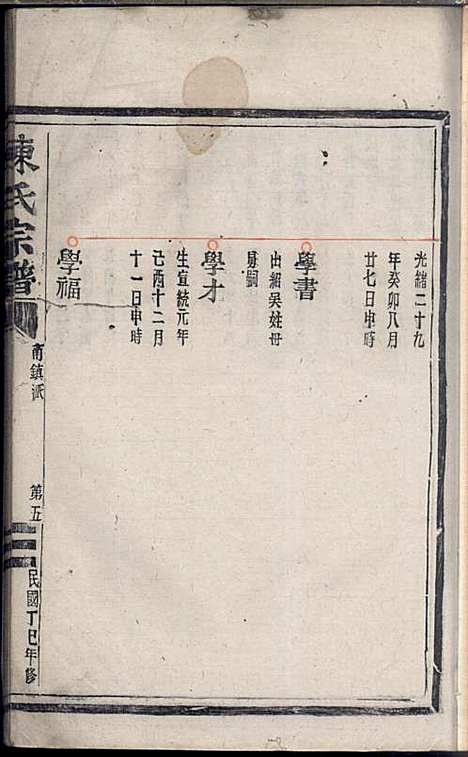 光緒二十九
年癸卯八月
廿七日申時
學書
出紹吳姓毋
異嗣
學才
生宣統元年
己酉十二月
十一日申時
學福
陳氏宗譜
甫鎮派
第五
民國丁巳年修